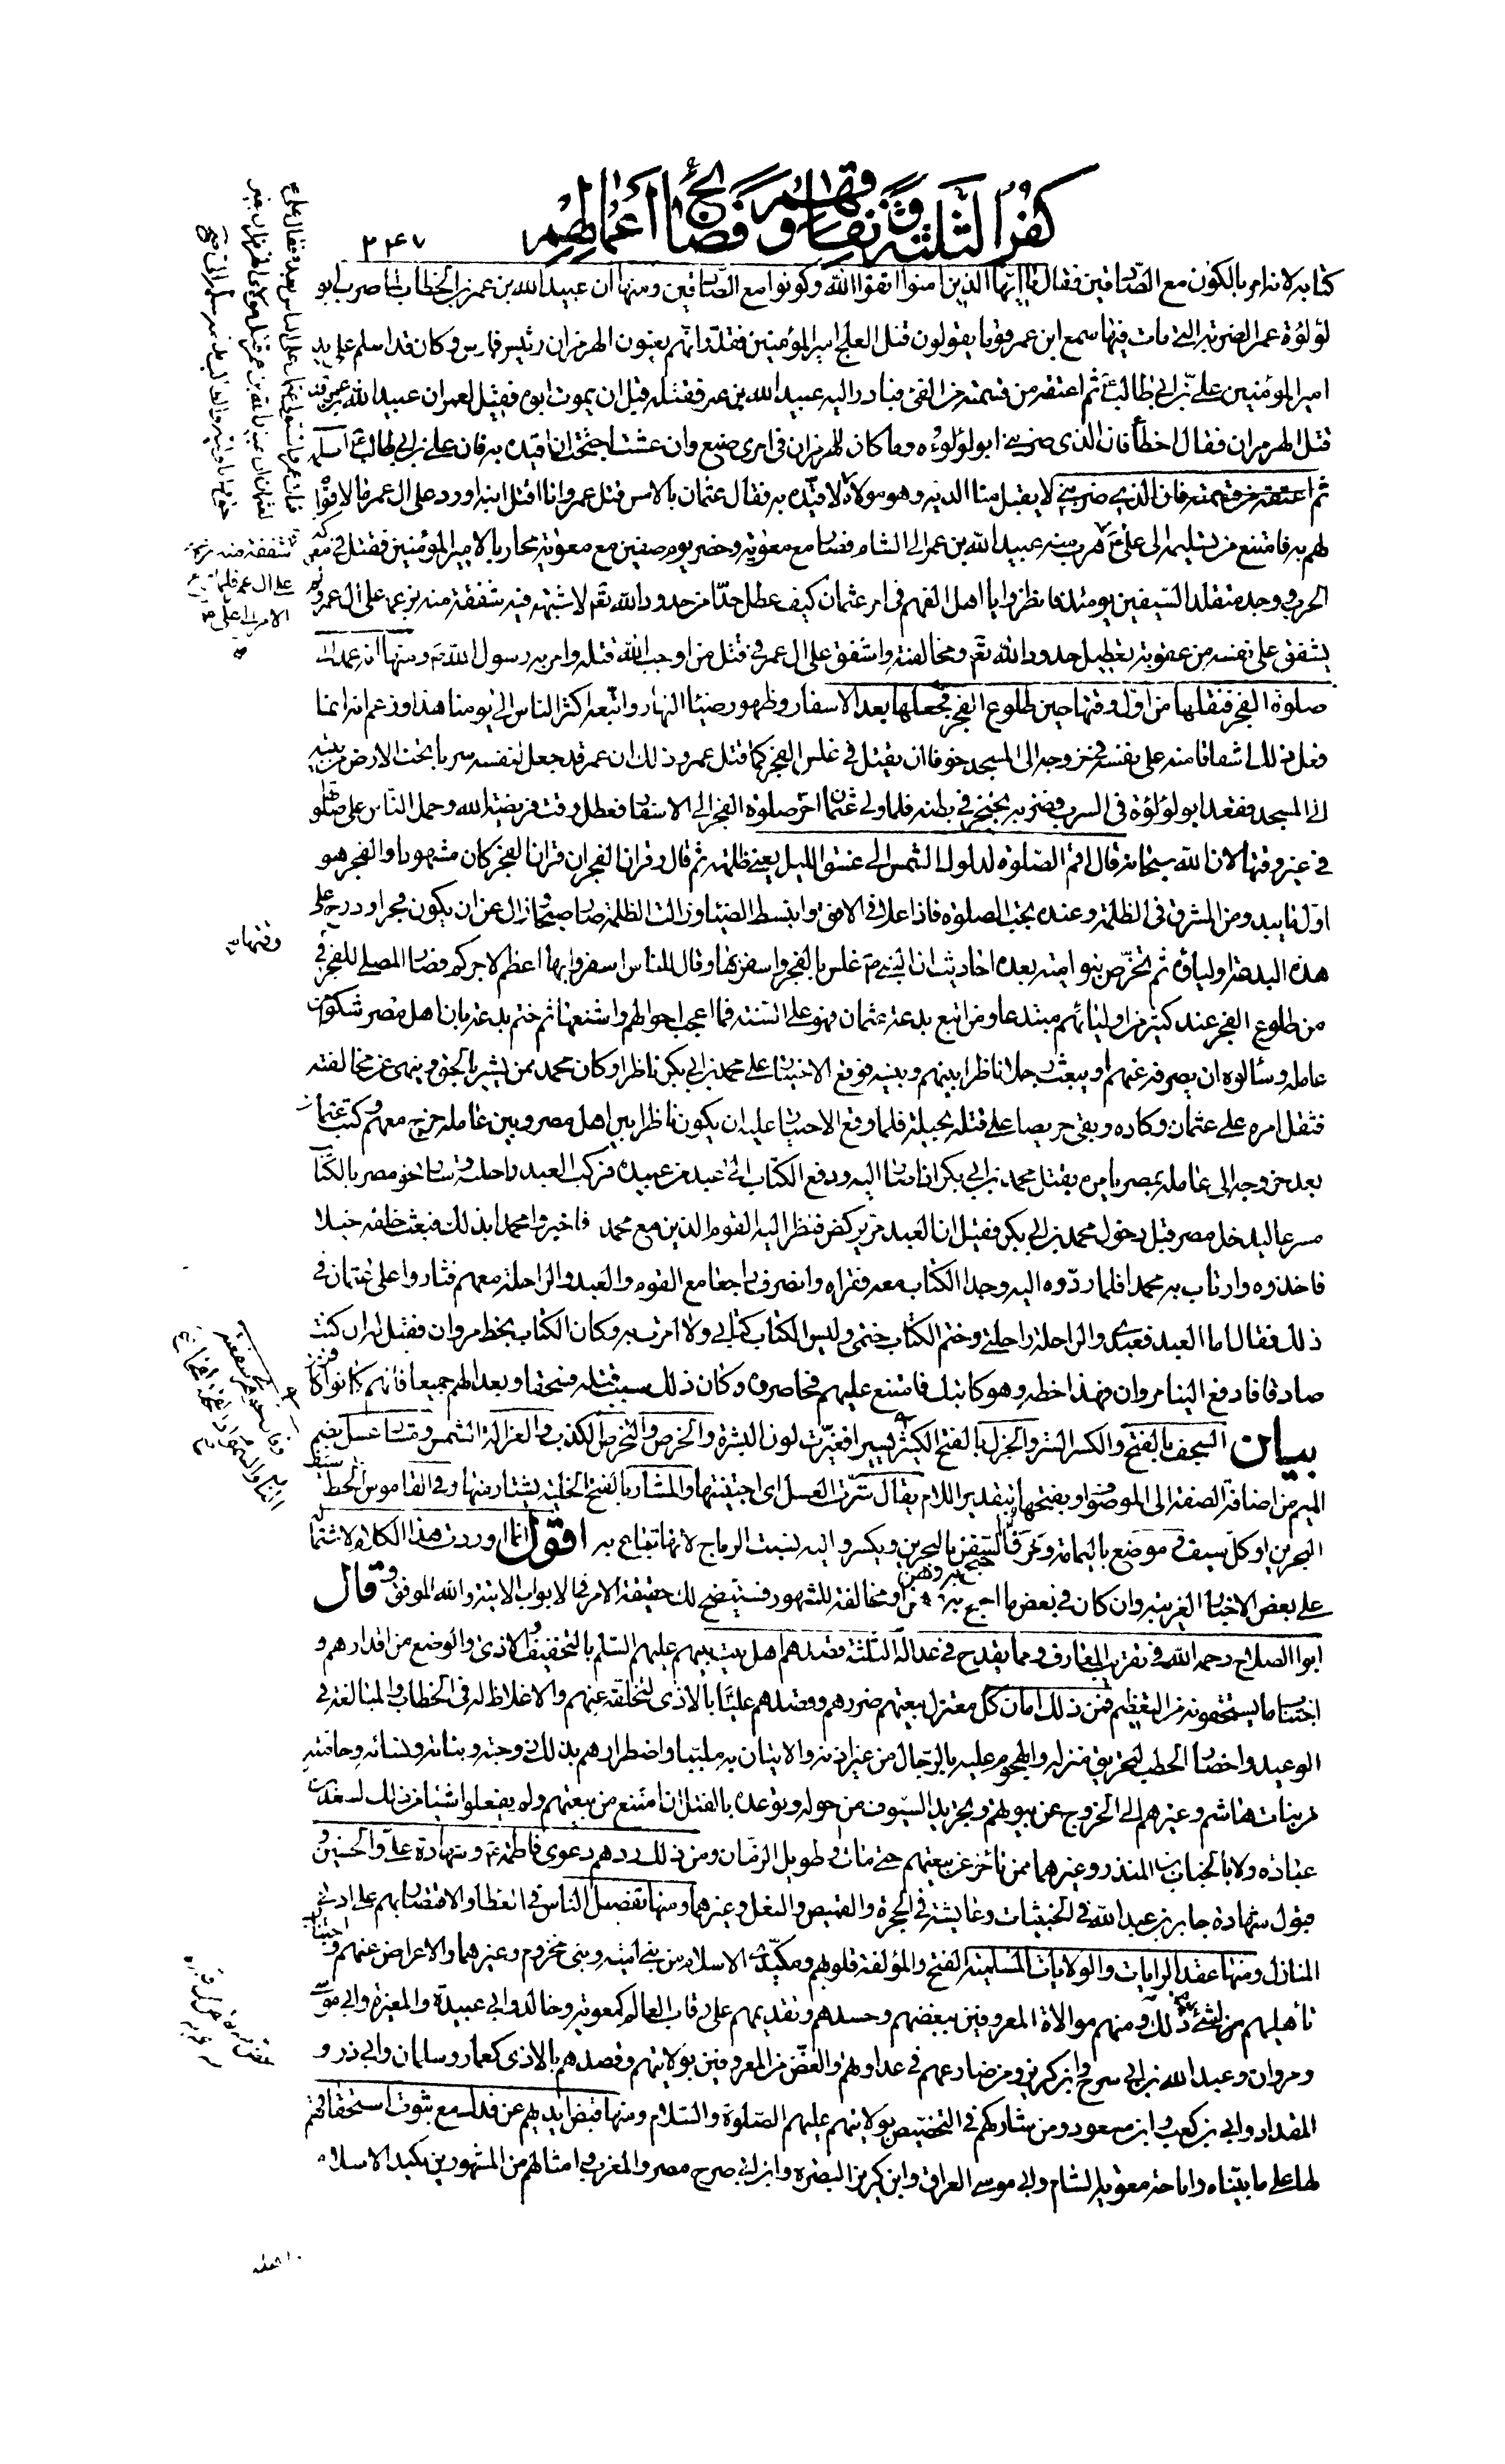 كفر الثلثة ونفاقهم وفضائح أعمالهم
٢٤٧
كتابه لانه امر بالكون مع الصادقين فقال يا ايها الذين امنوا اتقوا الله وكونوا مع الصادقين ومنها ان عبيد الله بن عمر بن الخطاب لما ضرب ابو
لؤلؤة عمر الضربة التي مات فيها سمع ابن عمر قوما يقولون قتل العلج امير المؤمنين فقدر انهم يعنون الهرمزان رئيس فارس وكان قد اسلم على يد
امير المؤمنين علي بن ابي طالب ثم اعتقه من قسمته من الفئ فبادر اليه عبيد الله بن عمر فقتله قبل ان يموت ابوه فقيل لعمر ان عبيد الله بن عمر قد
قتل الهرمزان فقال اخطأ فان الذي ضربني ابو لؤلؤه وما كان للهرمزان في امري صنيع وان عشت احتجت ان اقيده به فان علي بن ابي طالب
ثم اعتقه من قسمته فان الذي ضربني لا يقبل منا الدية وهو مولاه لاقيده به فقال عثمان بالامس قتل عمر وانا اقتل ابنه اورد على ال عمر ما لا قوام
لهم به فامتنع من تسليمه الى علي هرب منه عبيد الله بن عمر الى الشام فصار مع معوية وحضر يوم صفين مع معوية محاربا لامير المؤمنين فقتل في معركة
الحرب ووجد متقلد السيفين يومئذ فانظروا يا اهل الفهم في امر عثمان كيف عطل حدا من حدود الله تعم لا شبهة فيه شفقة منه بزعمه على ال عمر ولم
يشفق على نفسه من عقوبة تعطيل حدود الله تعم ومخالفته واشفق على ال عمر في قتل من اوجب الله قتله وامر به رسول الله ومنها انه عمد الى
صلوة الفجر فنقلها من اول وقتها حين طلوع الفجر فجعلها بعد الاسفار وظهور ضياء النهار واتبعه اكثر الناس الى يومنا هذا وزعم انه انما
فعل ذلك اشفاقا منه على نفسه في خروجه الى المسجد خوفا ان يقتل في غلس الفجر كما قتل عمر وذلك ان عمر قد جعل لنفسه سربا تحت الارض من بيته
الى المسجد فقعد ابو لؤلؤة في السرب فضربه بخنجر في بطنه فلما ولي عثمان اخر صلوة الفجر الى الاسفار فعطل وقت فريضة الله وحمل الناس على صلوتها
في غير وقتها لان الله سبحانه قال اقم الصلوة لدلوك الشمس الى غسق الليل يعني ظلمته ثم قال وقران الفجر ان قران الفجر كان مشهودا والفجر هو
اول ما يبدو من المشرق في الظلمة وعنده تجب الصلوة فاذا علا في الافق وانبسط الضياء وزالت الظلمة صار صبحا وزال عن ان يكون فجرا ودرج على
هذه البدعة اولياؤه ثم تخرص بنو امية بعده احاديث ان النبي غلس بالفجر واسفر بها وقال للناس اسفروا بها اعظم لاجركم فصار المصلي للفجر في
وقتها
من طلوع الفجر عند كثير من اوليائهم مبتدعا ومن اتبع بدعة عثمان فهو على السنة فما اعجب احوالهم واشنعها ثم ختم بدعه بان اهل مصر شكوا من
عامله وسألوه ان يصرفه عنهم او يبعث رجلا ناظرا بينهم وبينه فوقع الاختيار على محمد بن ابي بكر ناظرا وكان محمد ممن يشير بالحق وينهى عن مخالفته
فثقل امره على عثمان وكاده وبقي حريصا على قتله بحيلة فلما وقع الاختيار عليه ان يكون ناظرا بين اهل مصر وبين عامله خرج معهم وكتب عثمان
بعد خروجه الى عامله بمصر يامره بقتل محمد بن ابي بكر اذا صار اليه ودفع الكتاب الى عبد من عبيده فركب العبد راحلته وسار نحو مصر بالكتاب
مسرعا ليدخل مصر قبل دخول محمد بن ابي بكر فقيل ان العبد مر يركض فنظر اليه القوم الذين مع محمد فاخبروا محمدا بذلك فبعث خلفه خيلا
فاخذوه وارتاب به محمد فلما ردوه اليه وجد الكتاب معه فقراه وانصرف راجعا مع القوم والعبد والراحلة معهم فثاروا على عثمان في
ذلك فقال اما العبد فعبدي والراحلة راحلتي وختم الكتاب ختمي وليس الكتاب كتابي ولا امرت به وكان الكتاب بخط مروان فقيل له ان كنت
صادقا فادفع الينا مروان فهذا خطه وهو كاتبك فامتنع عليهم فحاصروه وكان ذلك سبب قتله فسحقا وبعدا لهم جميعا فانهم كانوا كافرين
بيان السجف بالفتح والكسر الستر والجزل بالفتح الكثير فغيرت لون البشرة والخرص والتخرص الكذب والغزالة الشمس ومشار عسل بضم
الميم من اضافة الصفة الى الموصوف او بفتحها بتقدير اللام يقال شرت العسل اي اجتنيتها والمشار بالفتح الخلية يشتار منها وفي القاموس الخط
البحرين او كل سيف وموضع باليمامة ومرفأ السفن بالبحرين ويكسر واليه نسبت الرماح لانها تباع به اقول انما اوردت هذا الكلام لاشتماله
على بعض الاخبار الغريبة وان كان في بعض ما احتج به وهن او مخالفة للمشهور فستتضح لك حقيقة الامر في الابواب الاتية والله الموفق وقال
ابو الصلاح رحمه الله في تقريب المعارف ومما يقدح في عدالة الثلثة قصدهم اهل بيت نبيهم عليهم السلم بالتخفيف والاذى والوضع من اقدارهم و
اجتناب ما يستحقونه من التعظيم فمن ذلك امان كل معتزل بيعتهم ضررهم وقصدهم عليا بالاذى لتخلفه عنهم والاغلاظ له في الخطاب والمبالغة في
الوعيد واحضار الحطب لتحريق منزله والهجوم عليه بالرجال من غير اذنه والاتيان به ملببا واضطرارهم بذلك زوجته وبناته ونسائه وحامته
من بنات هاشم وغيرهم الى الخروج عن بيوتهم وتجريد السيوف من حوله وتوعده بالقتل ان امتنع من بيعتهم ولم يفعلوا شيئا من ذلك لسعد بن
عبادة ولا بالحباب بن المنذر وغيرهما ممن تأخر عن بيعتهم حتى مات او طويل الزمان ومن ذلك ردهم دعوى فاطمة وشهادة علي والحسنين و
قبول شهادة جابر بن عبد الله في الحثيات وعايشة في الحجرة والقميص والنعل وغيرهما ومنها تفضيل الناس في العطاء والاقتصار بهم على ادنى
المنازل ومنها عقد الرايات والولايات لمسلمية الفتح والمؤلفة قلوبهم ومكيدي الاسلام من بني امية وبني مخزوم وغيرهما والاعراض عنهم واجتناب
تأهيلهم لشيء من ذلك ومنهم موالاة المعروفين ببغضهم وحسدهم وتقديمهم على رقاب العالم كمعوية وخالد وابي عبيدة والمغيرة وابي موسى
ومروان وعبد الله بن ابي سرح وابن كريز ومن ضارعهم في عداوتهم والغض من المعروفين بولايتهم وقصدهم بالاذى كعمار وسلمان وابي ذر و
المقداد وابي بن كعب وابن مسعود ومن شاركهم في التخصيص بولايتهم عليهم الصلوة والسلام ومنها قبض ايديهم عن فدك مع ثبوت استحقاقهم
لها على ما بيناه واباحة معوية الشام وابي موسى العراق وابن كريز البصرة وابن ابي صرح مصر والمغرب وامثالهم من المشهورين بكيد الاسلام